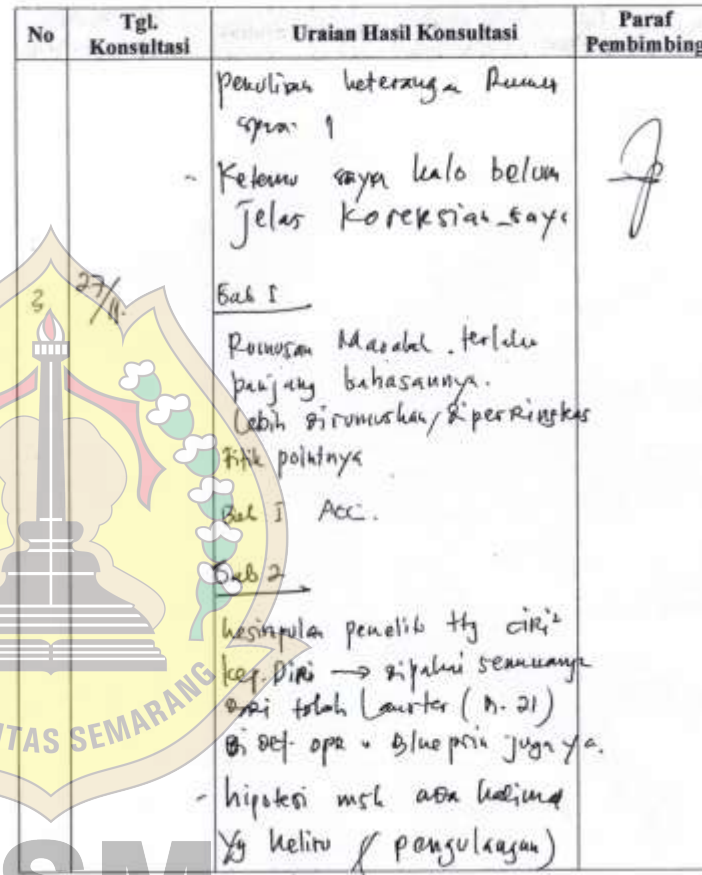 No Tgl. Konsultasi Uraian Hasil Konsultasi Paraf Pembimbing
penulisan keterangan Rumus
- Ketemu saya kalo belum
jelas Koreksian saya
3 27/11 Bab I
Rumusan Masalah terlalu
panjang bahasannya.
Lebih dirumuskan/diperRingkas
titik pointnya
Bab I Acc.
Bab 2
kesimpulan penelit ttg ciRi²
kep. DiRi → dipakai semuanya
dari tokoh Lauster (h. 21)
di def. opR & Blueprin juga ya.
- hipotesi msh ada kalimat
Yg keliru (pengulangan)
ITAS SEMARANG
SM